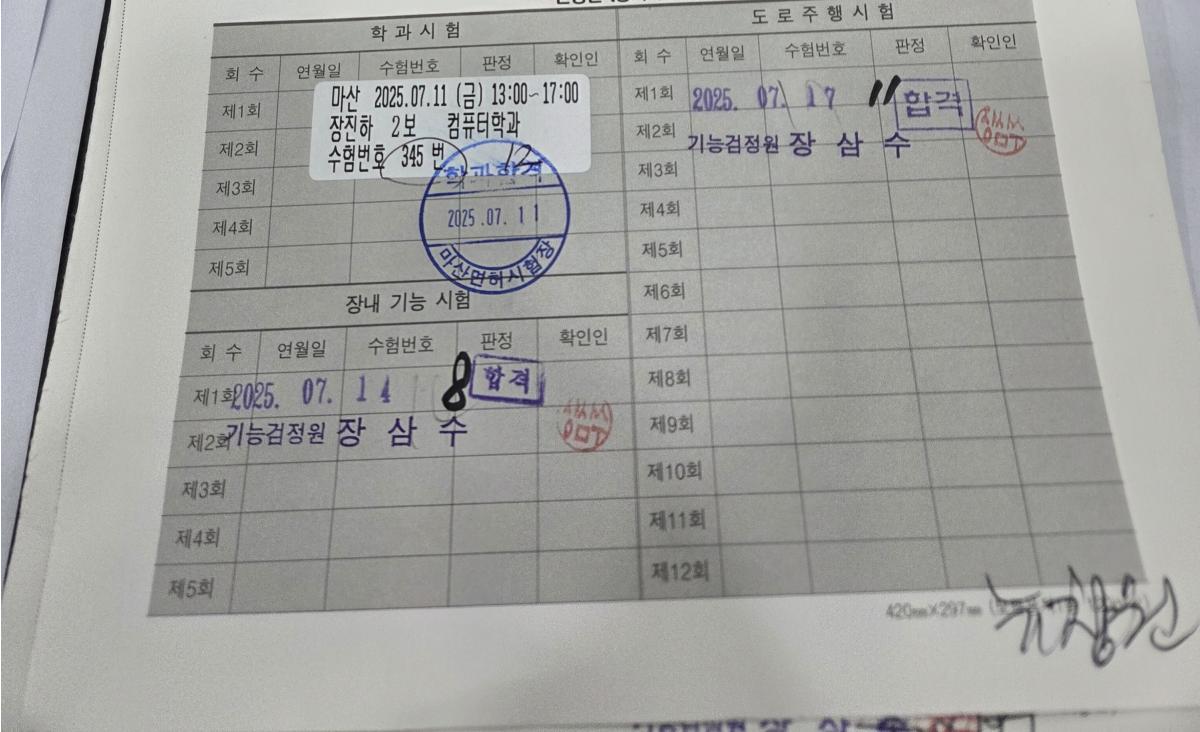 학 과 시 험
회 수 연월일 수험번호 판정 확인인
제1회
제2회
제3회
제4회
제5회
마산 2025.07.11 (금) 13:00~17:00
장진하 2보 컴퓨터학과
수험번호 345 번
12
학과합격
2025.07.11
마산면허시험장
장내 기능 시험
회 수 연월일 수험번호 판정 확인인
제1회 2025. 07. 14 8 합격
제2회 기능검정원 장 삼 수
제3회
제4회
제5회
도 로 주 행 시 험
회 수 연월일 수험번호 판정 확인인
제1회 2025. 07. 17 11 합격
제2회 기능검정원 장 삼 수
제3회
제4회
제5회
제6회
제7회
제8회
제9회
제10회
제11회
제12회
420㎜×297㎜